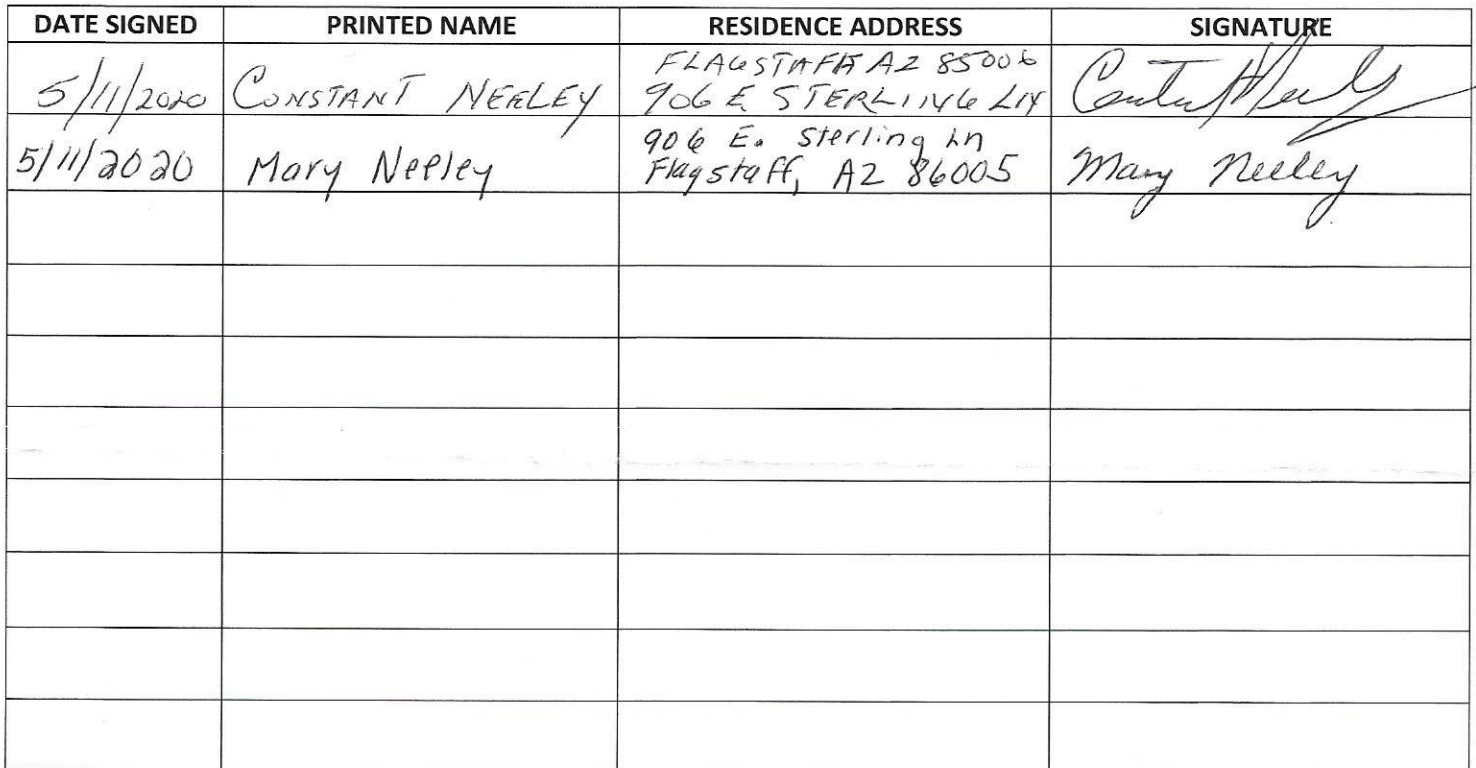 DATE SIGNED PRINTED NAME RESIDENCE ADDRESS SIGNATURE
5/11/2020 CONSTANT NEELEY FLAGSTAFF AZ 85006
906 E STERLING LN
5/11/2020 Mary Neeley 906 E. Sterling Ln
Flagstaff, AZ 86005 Mary Neeley